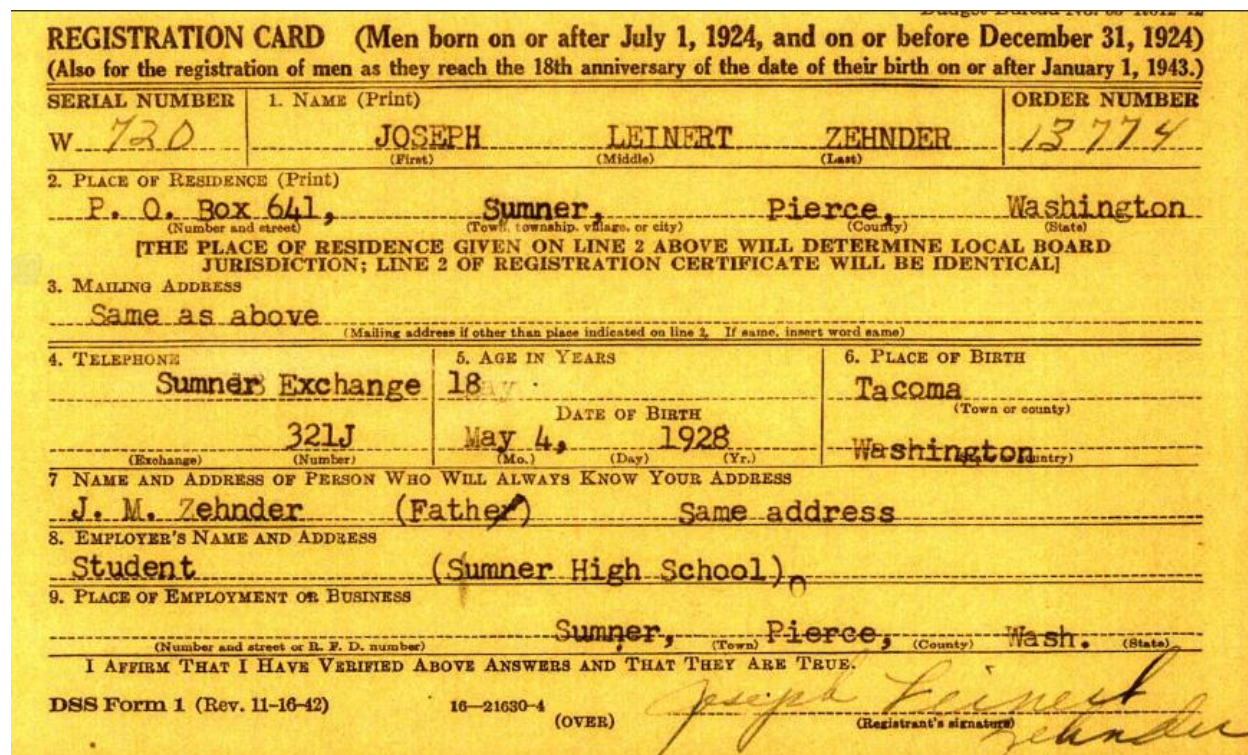 REGISTRATION CARD (Men born on or after July 1, 1924, and on or before December 31, 1924)
(Also for the registration of men as they reach the 18th anniversary of the date of their birth on or after January 1, 1943.)
SERIAL NUMBER 1. NAME (Print) ORDER NUMBER
W 720 JOSEPH LEINERT ZEHNDER 13774
(First) (Middle) (Last)
2. PLACE OF RESIDENCE (Print)
P. O. Box 641, Sumner, Pierce, Washington
(Number and street) (Town, township, village, or city) (County) (State)
[THE PLACE OF RESIDENCE GIVEN ON LINE 2 ABOVE WILL DETERMINE LOCAL BOARD
JURISDICTION; LINE 2 OF REGISTRATION CERTIFICATE WILL BE IDENTICAL]
3. MAILING ADDRESS
Same as above
(Mailing address if other than place indicated on line 2. If same, insert word same)
4. TELEPHONE 5. AGE IN YEARS 6. PLACE OF BIRTH
Sumner Exchange 18 Tacoma
DATE OF BIRTH (Town or county)
321J May 4, 1928 Washington
(Exchange) (Number) (Mo.) (Day) (Yr.) country)
7 NAME AND ADDRESS OF PERSON WHO WILL ALWAYS KNOW YOUR ADDRESS
J. M. Zehnder (Father) Same address
8. EMPLOYER'S NAME AND ADDRESS
Student (Sumner High School)
9. PLACE OF EMPLOYMENT OR BUSINESS
Sumner, Pierce, Wash.
(Number and street or R. F. D. number) (Town) (County) (State)
I AFFIRM THAT I HAVE VERIFIED ABOVE ANSWERS AND THAT THEY ARE TRUE.
Joseph Leinert
DSS Form 1 (Rev. 11-16-42) 16—21630-4 Zehnder
(OVER) (Registrant's signature)